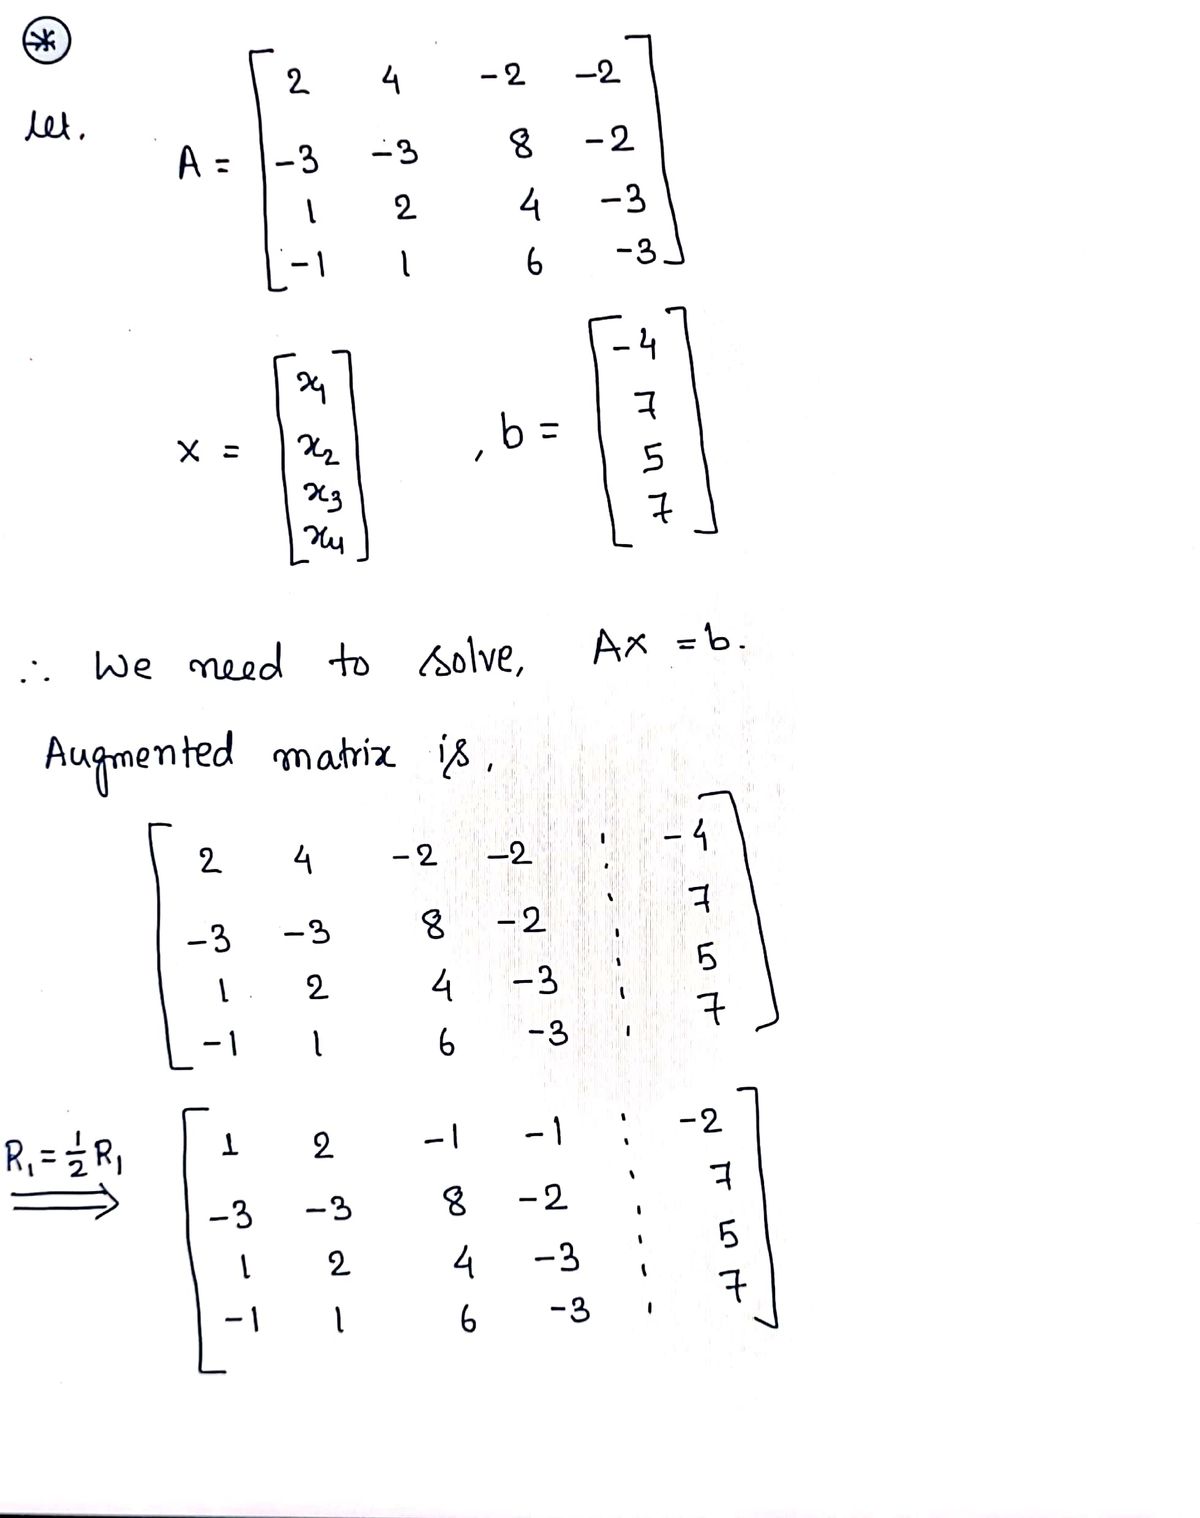 *
let.
A = [ 2 4 -2 -2
-3 -3 8 -2
1 2 4 -3
-1 1 6 -3 ]
x = [ x1 x2 x3 x4 ] , b = [ -4 7 5 7 ]
∴ We need to solve, Ax = b.
Augmented matrix is,
[ 2 4 -2 -2 ⋮ -4
-3 -3 8 -2 ⋮ 7
1 2 4 -3 ⋮ 5
-1 1 6 -3 ⋮ 7 ]
R₁ = ½ R₁ ⟹
[ 1 2 -1 -1 ⋮ -2
-3 -3 8 -2 ⋮ 7
1 2 4 -3 ⋮ 5
-1 1 6 -3 ⋮ 7 ]